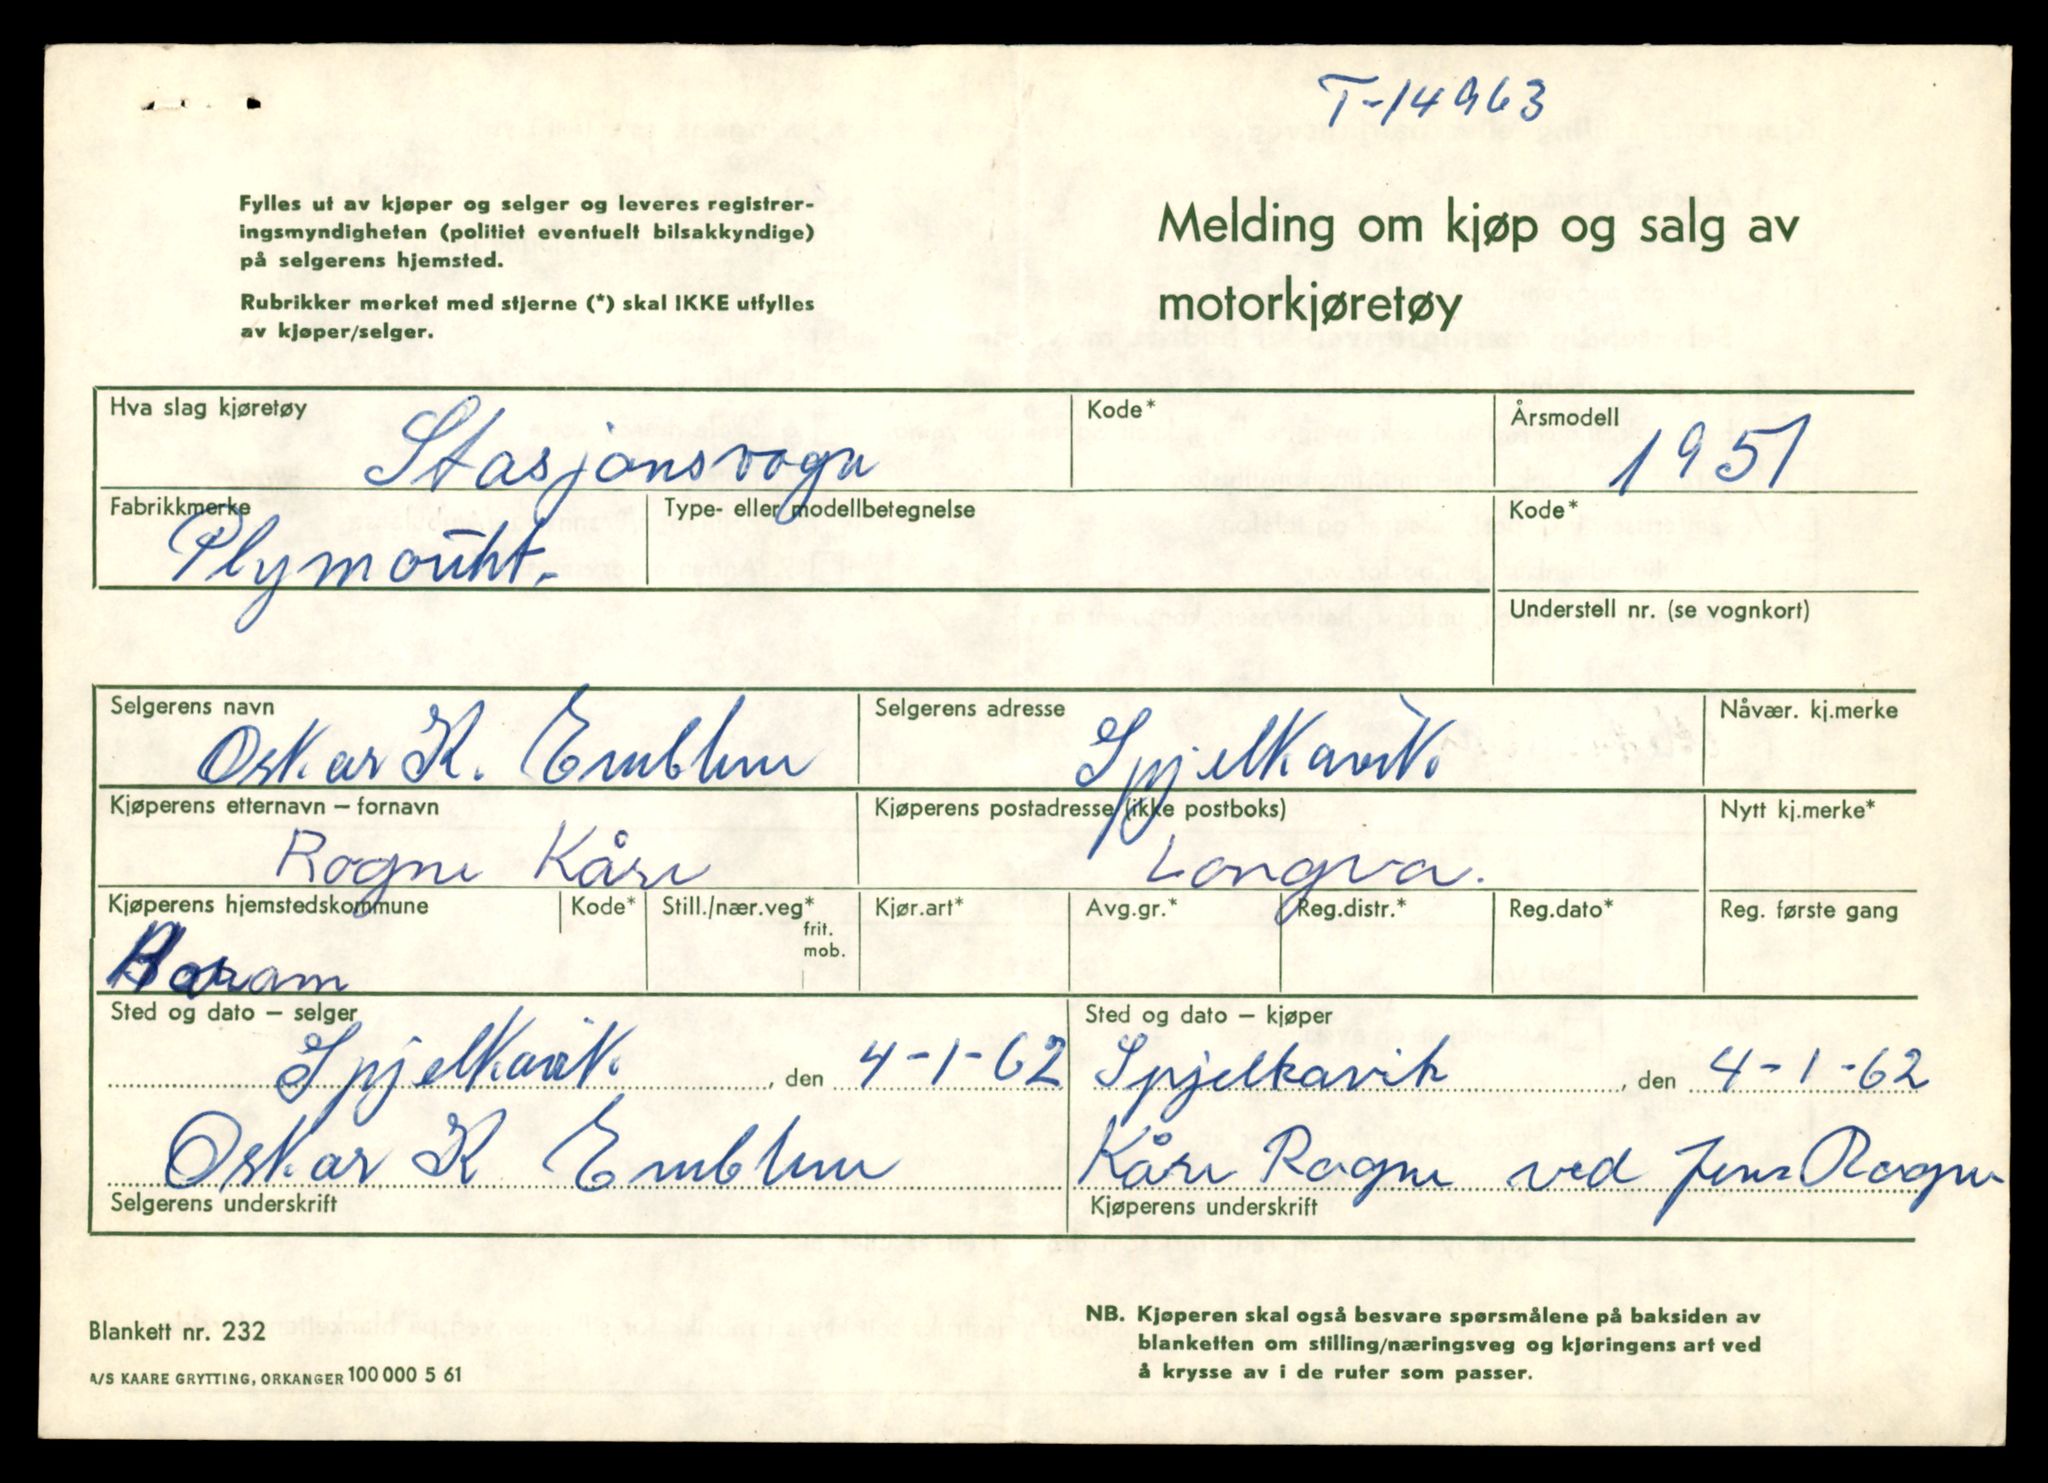 T-14963
Fylles ut av kjøper og selger og leveres registrer-
ingsmyndigheten (politiet eventuelt bilsakkyndige)
på selgerens hjemsted.
Rubrikker merket med stjerne (*) skal IKKE utfylles
av kjøper/selger.
Melding om kjøp og salg av
motorkjøretøy
Hva slag kjøretøy Stasjonsvogn Kode* Årsmodell 1951
Fabrikkmerke Plymouht. Type- eller modellbetegnelse Kode*
Understell nr. (se vognkort)
Selgerens navn Oskar K. Emblem Selgerens adresse Spjelkavik. Nåvær. kj.merke
Kjøperens etternavn – fornavn Rogne Kåre Kjøperens postadresse (ikke postboks) Longva. Nytt kj.merke*
Kjøperens hjemstedskommune Haram Kode* Still./nær.veg* frit. mob. Kjør.art* Avg.gr.* Reg.distr.* Reg.dato* Reg. første gang
Sted og dato – selger Sted og dato – kjøper
Spjelkavik. , den 4-1-62 Spjelkavik , den 4-1-62
Oskar K Emblem Kåre Rogne ved Jens Rogne
Selgerens underskrift Kjøperens underskrift
Blankett nr. 232
A/S KAARE GRYTTING, ORKANGER 100 000 5 61
NB. Kjøperen skal også besvare spørsmålene på baksiden av
blanketten om stilling/næringsveg og kjøringens art ved
å krysse av i de ruter som passer.